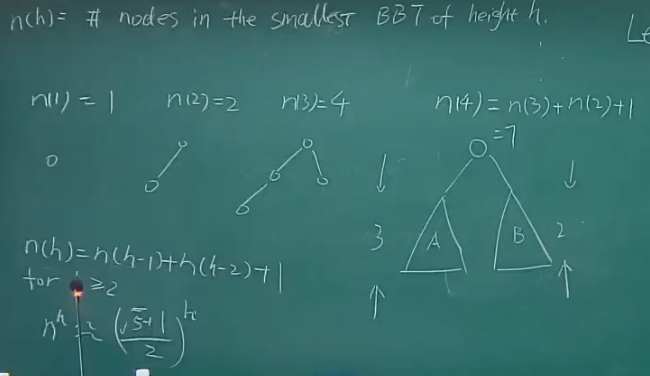 n(h) = # nodes in the smallest BBT of height h.
Le
n(1) = 1 n(2)=2 n(3)=4 n(4) = n(3)+n(2)+1
=7
3 A B 2
n(h)=n(h-1)+n(h-2)+1
for h ≥2
n^h ≈ ((√5+1)/2)^h